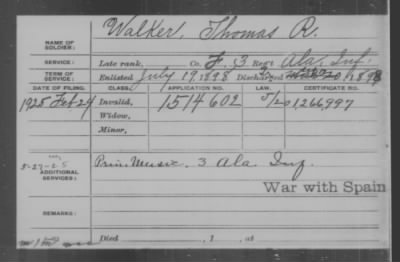 NAME OF SOLDIER: Walker, Thomas R.
SERVICE: Late rank, Co. F, 3 Reg't Ala. Inf.
TERM OF SERVICE: Enlisted July 19, 1898 Discharged 1898
DATE OF FILING. CLASS. APPLICATION NO. LAW. CERTIFICATE NO.
1925 Feb 24 Invalid, 1514602 1266997
Widow,
Minor,
5-27-25
ADDITIONAL SERVICES: Prin. Music. 3 Ala. Inf.
War with Spain
REMARKS:
Died , 1 , at